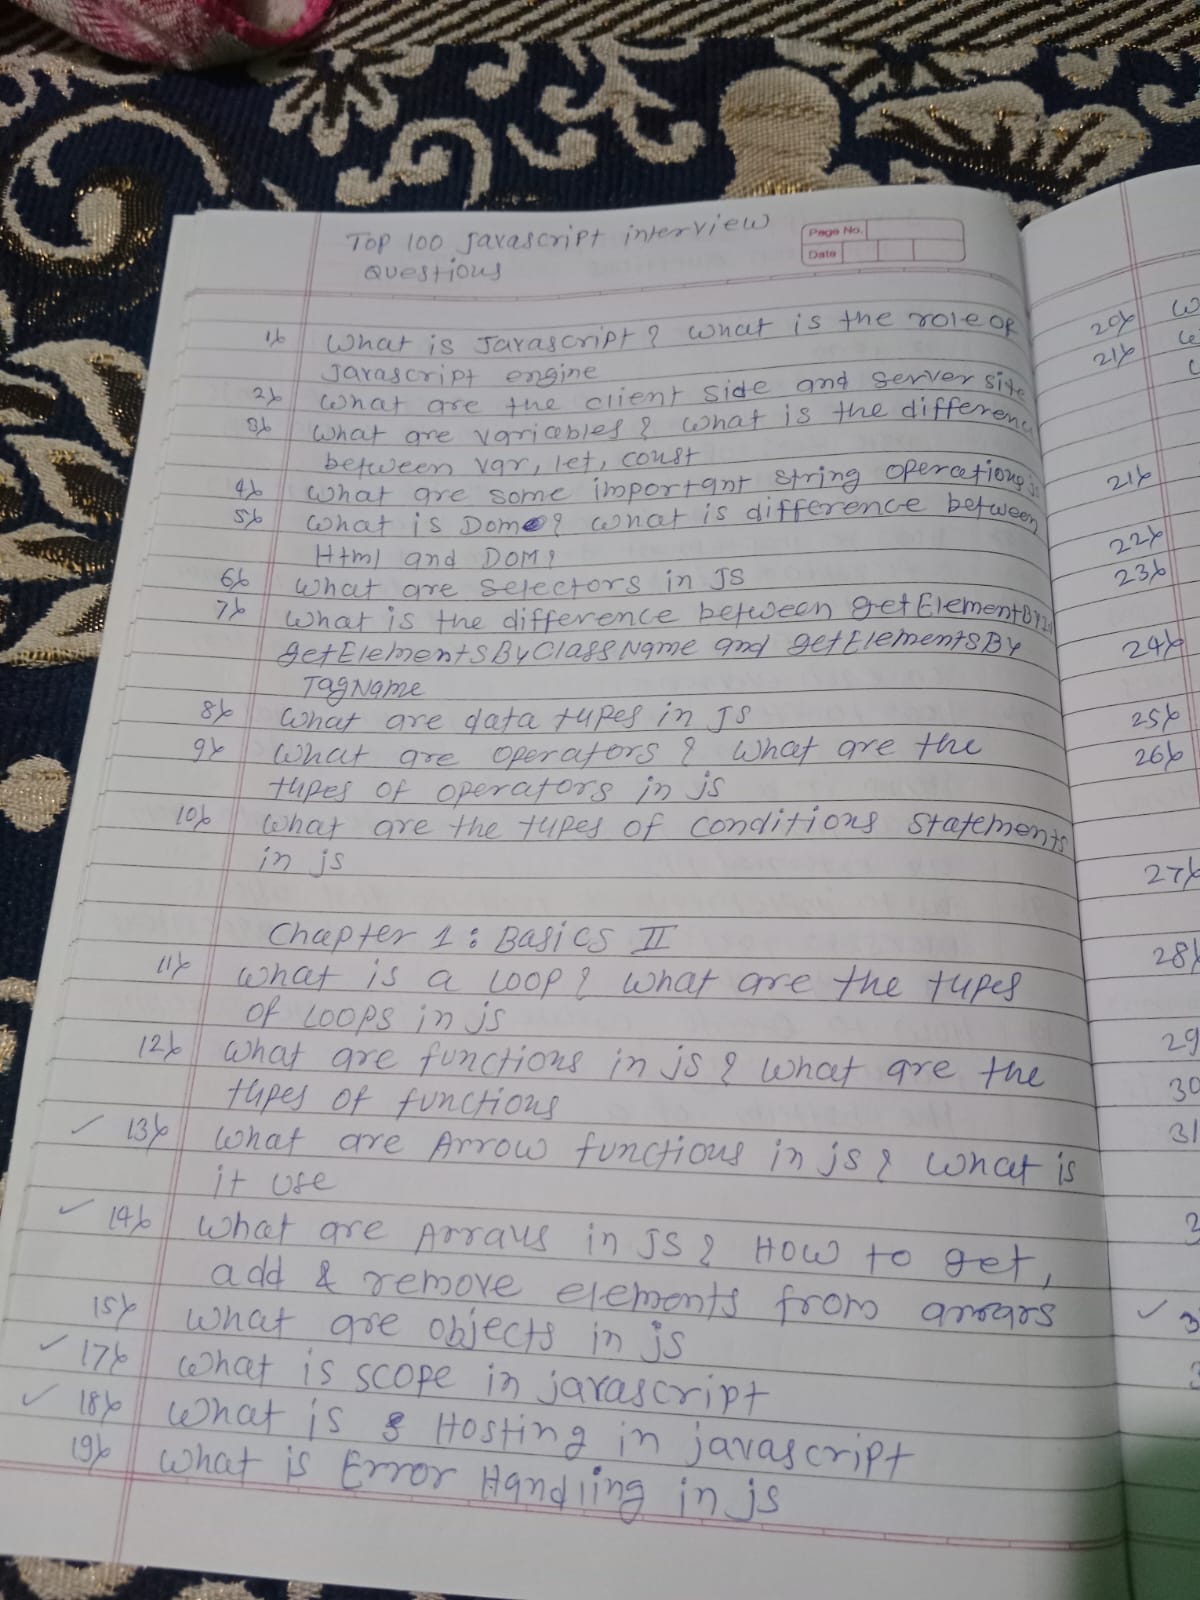 Top 100 Javascript interview
Questions
Page No.
Date
1) What is Javascript? What is the role of
Javascript engine
2) What are the client side and server site
3) What are variables? What is the differenc
between var, let, const
4) What are some important string operations
5) What is Dom? What is difference between
Html and DOM?
6) What are selectors in JS
7) What is the difference between getElementById
getElementsByClassName and getElementsBy
TagName
8) What are data types in JS
9) What are operators? What are the
types of operators in js
10) What are the types of conditions statements
in js
Chapter 1: Basics II
11) What is a loop? What are the types
of loops in js
12) What are functions in js? What are the
types of functions
✓ 13) What are Arrow functions in js? What is
it use
✓ 14) What are Arrays in JS? How to get,
add & remove elements from arrars
15) What are objects in js
✓ 17) What is scope in javascript
✓ 18) What is Hosting in javascript
19) What is Error Handling in js
20)
21)
21)
22)
23)
24)
25)
26)
27)
28)
29
30
31